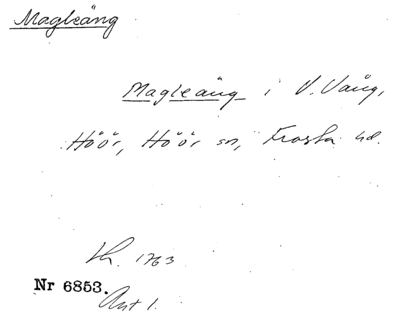 Magleäng
Magleäng i V. Vång,
Höör, Höör sn, Frosta hd.
Lh. 1763
Nr 6853.
Akt 1.